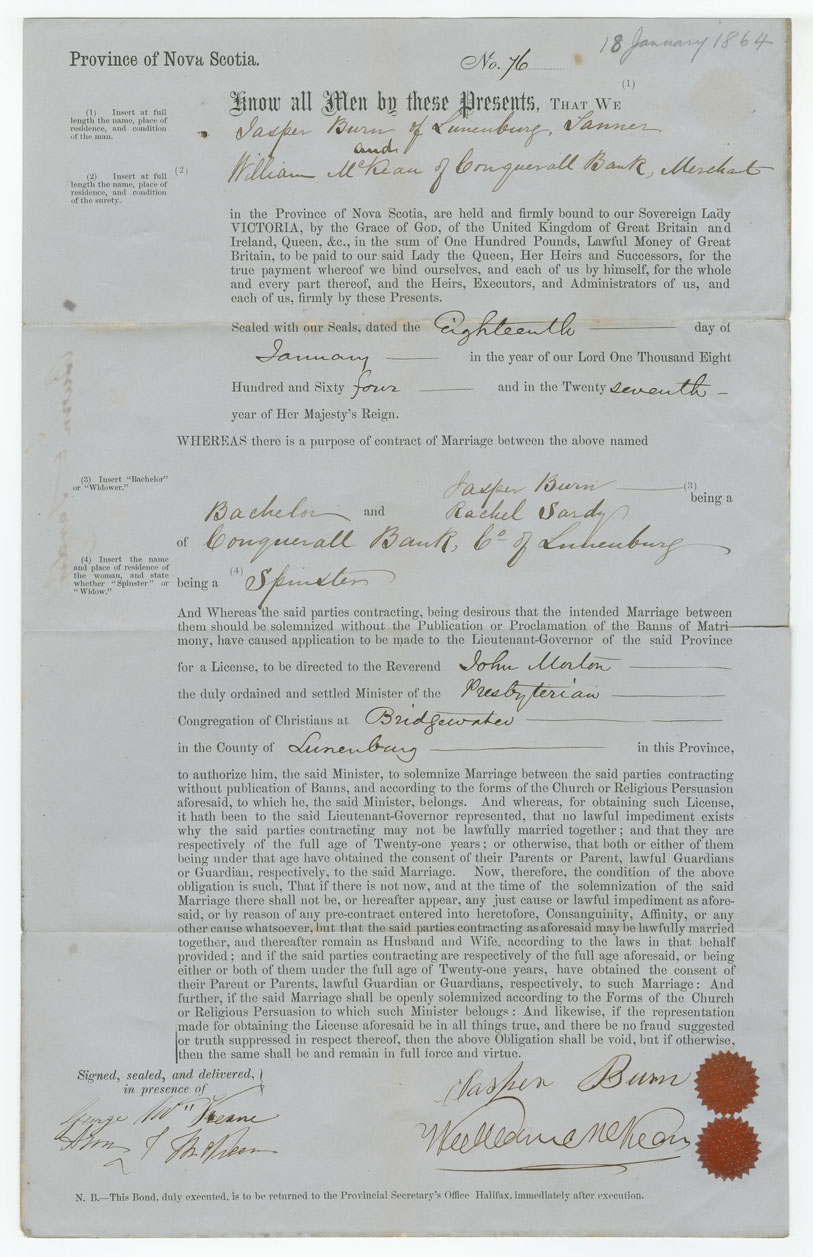 18 January 1864
Province of Nova Scotia.
No. 76
(1)
Know all Men by these Presents, THAT WE
(1) Insert at full
length the name, place of
residence, and condition
of the man.
Jasper Burn of Lunenburg, Tanner
and
(2)
William McKean of Conquerall Bank, Merchant
(2) Insert at full
length the name, place of
residence, and condition
of the surety.
in the Province of Nova Scotia, are held and firmly bound to our Sovereign Lady
VICTORIA, by the Grace of GOD, of the United Kingdom of Great Britain and
Ireland, Queen, &c., in the sum of One Hundred Pounds, Lawful Money of Great
Britain, to be paid to our said Lady the Queen, Her Heirs and Successors, for the
true payment whereof we bind ourselves, and each of us by himself, for the whole
and every part thereof, and the Heirs, Executors, and Administrators of us, and
each of us, firmly by these Presents.
Sealed with our Seals, dated the Eighteenth day of
January in the year of our Lord One Thousand Eight
Hundred and Sixty four and in the Twenty seventh
year of Her Majesty's Reign.
WHEREAS there is a purpose of contract of Marriage between the above named
(3) Insert "Bachelor"
or "Widower."
Jasper Burn (3) being a
Bachelor and Rachel Sardy
of Conquerall Bank, Co of Lunenburg
(4) Insert the name
and place of residence of
the woman, and state
whether "Spinster" or
"Widow."
being a (4) Spinster
And Whereas the said parties contracting, being desirous that the intended Marriage between
them should be solemnized without the Publication or Proclamation of the Banns of Matri-
mony, have caused application to be made to the Lieutenant-Governor of the said Province
for a License, to be directed to the Reverend John Morton
the duly ordained and settled Minister of the Presbyterian
Congregation of Christians at Bridgewater
in the County of Lunenburg in this Province,
to authorize him, the said Minister, to solemnize Marriage between the said parties contracting
without publication of Banns, and according to the forms of the Church or Religious Persuasion
aforesaid, to which he, the said Minister, belongs. And whereas, for obtaining such License,
it hath been to the said Lieutenant-Governor represented, that no lawful impediment exists
why the said parties contracting may not be lawfully married together; and that they are
respectively of the full age of Twenty-one years; or otherwise, that both or either of them
being under that age have obtained the consent of their Parents or Parent, lawful Guardians
or Guardian, respectively, to the said Marriage. Now, therefore, the condition of the above
obligation is such, That if there is not now, and at the time of the solemnization of the said
Marriage there shall not be, or hereafter appear, any just cause or lawful impediment as afore-
said, or by reason of any pre-contract entered into heretofore, Consanguinity, Affinity, or any
other cause whatsoever, but that the said parties contracting as aforesaid may be lawfully married
together, and thereafter remain as Husband and Wife, according to the laws in that behalf
provided; and if the said parties contracting are respectively of the full age aforesaid, or being
either or both of them under the full age of Twenty-one years, have obtained the consent of
their Parent or Parents, lawful Guardian or Guardians, respectively, to such Marriage: And
further, if the said Marriage shall be openly solemnized according to the Forms of the Church
or Religious Persuasion to which such Minister belongs: And likewise, if the representation
made for obtaining the License aforesaid be in all things true, and there be no fraud suggested
or truth suppressed in respect thereof, then the above Obligation shall be void, but if otherwise,
then the same shall be and remain in full force and virtue.
Signed, sealed, and delivered,
in presence of
Jasper Burn
George
William McKean
N. B.—This Bond, duly executed, is to be returned to the Provincial Secretary's Office Halifax, immediately after execution.